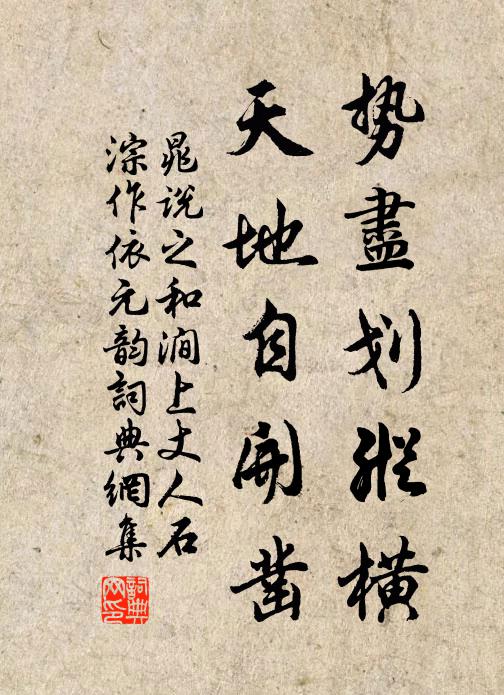 势盡划縱橫
天地自開凿
晁说之和澗上丈人石
淙作依元韵詞典網集
詞典网印